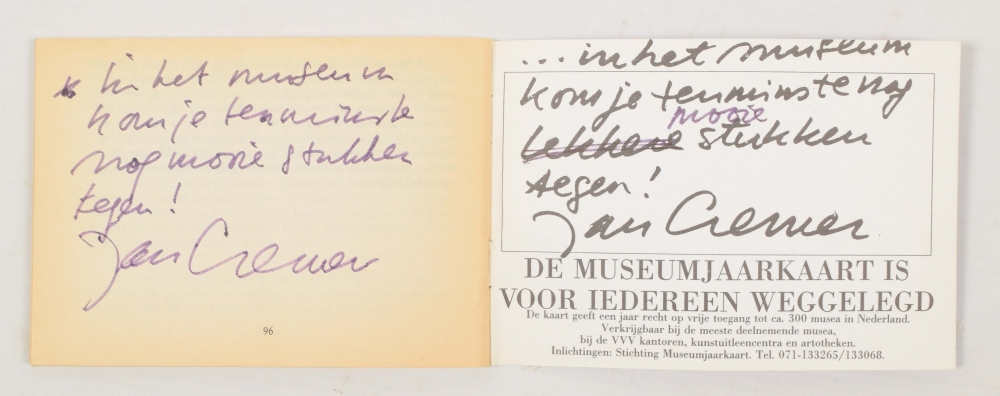 in het museum
kom je tenminste
nog mooie stukken
tegen!
Jan Cremer
96
... in het museum
kom je tenminste nog
mooie
lekkere stukken
tegen!
Jan Cremer
DE MUSEUMJAARKAART IS
VOOR IEDEREEN WEGGELEGD
De kaart geeft een jaar recht op vrije toegang tot ca. 300 musea in Nederland.
Verkrijgbaar bij de meeste deelnemende musea,
bij de VVV kantoren, kunstuitleencentra en artotheken.
Inlichtingen: Stichting Museumjaarkaart. Tel. 071-133265/133068.